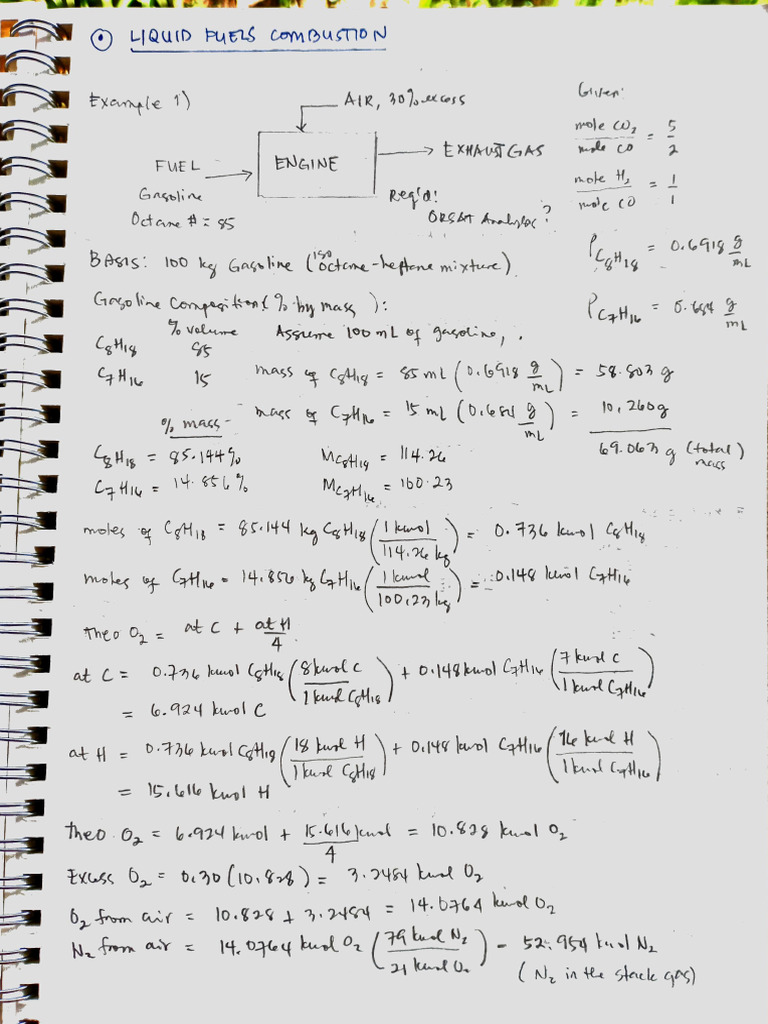 ⊙ LIQUID FUELS COMBUSTION
Example 1)
AIR, 30% excess
FUEL
Gasoline
Octane # = 85
ENGINE
EXHAUST GAS
Req'd!
ORSAT Analysis?
Given:
mole CO2 / mole CO = 5 / 2
mole H2 / mole CO = 1 / 1
ρC8H18 = 0.6918 g/mL
ρC7H16 = 0.684 g/mL
BASIS: 100 kg Gasoline (iso octane-heptane mixture)
Gasoline Composition (% by mass):
% volume Assume 100 mL of gasoline,
C8H18 85
C7H16 15
mass of C8H18 = 85 mL (0.6918 g/mL) = 58.803 g
mass of C7H16 = 15 mL (0.684 g/mL) = 10.260 g
69.063 g (total mass)
% mass
C8H18 = 85.144% MC8H18 = 114.26
C7H16 = 14.856% MC7H16 = 100.23
moles of C8H18 = 85.144 kg C8H18 (1 kmol / 114.26 kg) = 0.736 kmol C8H18
moles of C7H16 = 14.856 kg C7H16 (1 kmol / 100.23 kg) = 0.148 kmol C7H16
Theo O2 = at C + at H / 4
at C = 0.736 kmol C8H18 (8 kmol C / 1 kmol C8H18) + 0.148 kmol C7H16 (7 kmol C / 1 kmol C7H16)
= 6.924 kmol C
at H = 0.736 kmol C8H18 (18 kmol H / 1 kmol C8H18) + 0.148 kmol C7H16 (16 kmol H / 1 kmol C7H16)
= 15.616 kmol H
Theo. O2 = 6.924 kmol + 15.616 kmol / 4 = 10.828 kmol O2
Excess O2 = 0.30 (10.828) = 3.2484 kmol O2
O2 from air = 10.828 + 3.2484 = 14.0764 kmol O2
N2 from air = 14.0764 kmol O2 (79 kmol N2 / 21 kmol O2) = 52.954 kmol N2
(N2 in the stack gas)